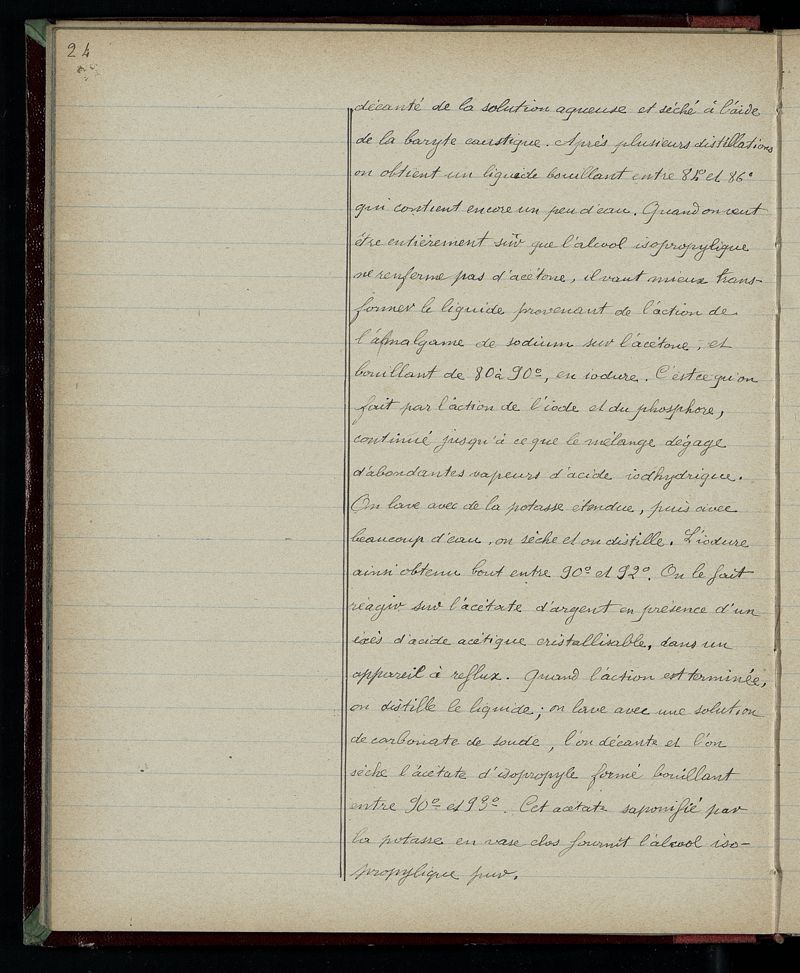 24
décanté de la solution aqueuse et séché à l'aide
de la baryte caustique. Après plusieurs distillations
on obtient un liquide bouillant entre et 86°
qui contient encore un peu d'eau. Quand on veut
être entièrement sûr que l'alcool isopropylique
ne renferme pas d'acétone, il vaut mieux trans-
former le liquide provenant de l'action de
l'amalgame de sodium sur l'acétone, et
bouillant de 80 à 90°, en iodure. C'est ce qu'on
fait par l'action de l'iode et du phosphore,
continué jusqu'à ce que le mélange dégage
d'abondantes vapeurs d'acide iodhydrique.
On lave avec de la potasse étendue, puis avec
beaucoup d'eau, on sèche et on distille. L'iodure
ainsi obtenu bout entre 90° et 92°. On le fait
réagir sur l'acétate d'argent en présence d'un
exès d'acide acétique cristallisable, dans un
appareil à reflux. Quand l'action est terminée,
on distille le liquide; on lave avec une solution
de carbonate de soude, l'on décante et l'on
sèche l'acétate d'isopropyle formé bouillant
entre 90° et 93°. Cet acétate saponifié par
la potasse en vase clos fournit l'alcool iso-
propylique pur.